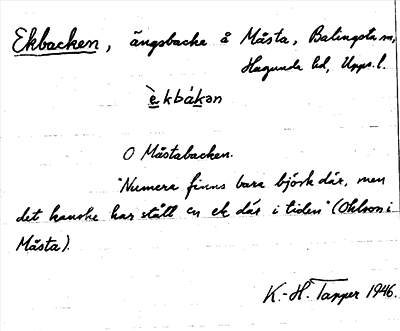 Ekbacken, ängsbacke å Måsta, Balingsta sn,
Hagunda hd, Upps. l.
è̱kbáḵən
O Måstabacken.
"Numera finns bara björk där, men
det kanske har stått en ek där i tiden" (Ohlson i
Måsta).
K.-H. Tapper 1946.